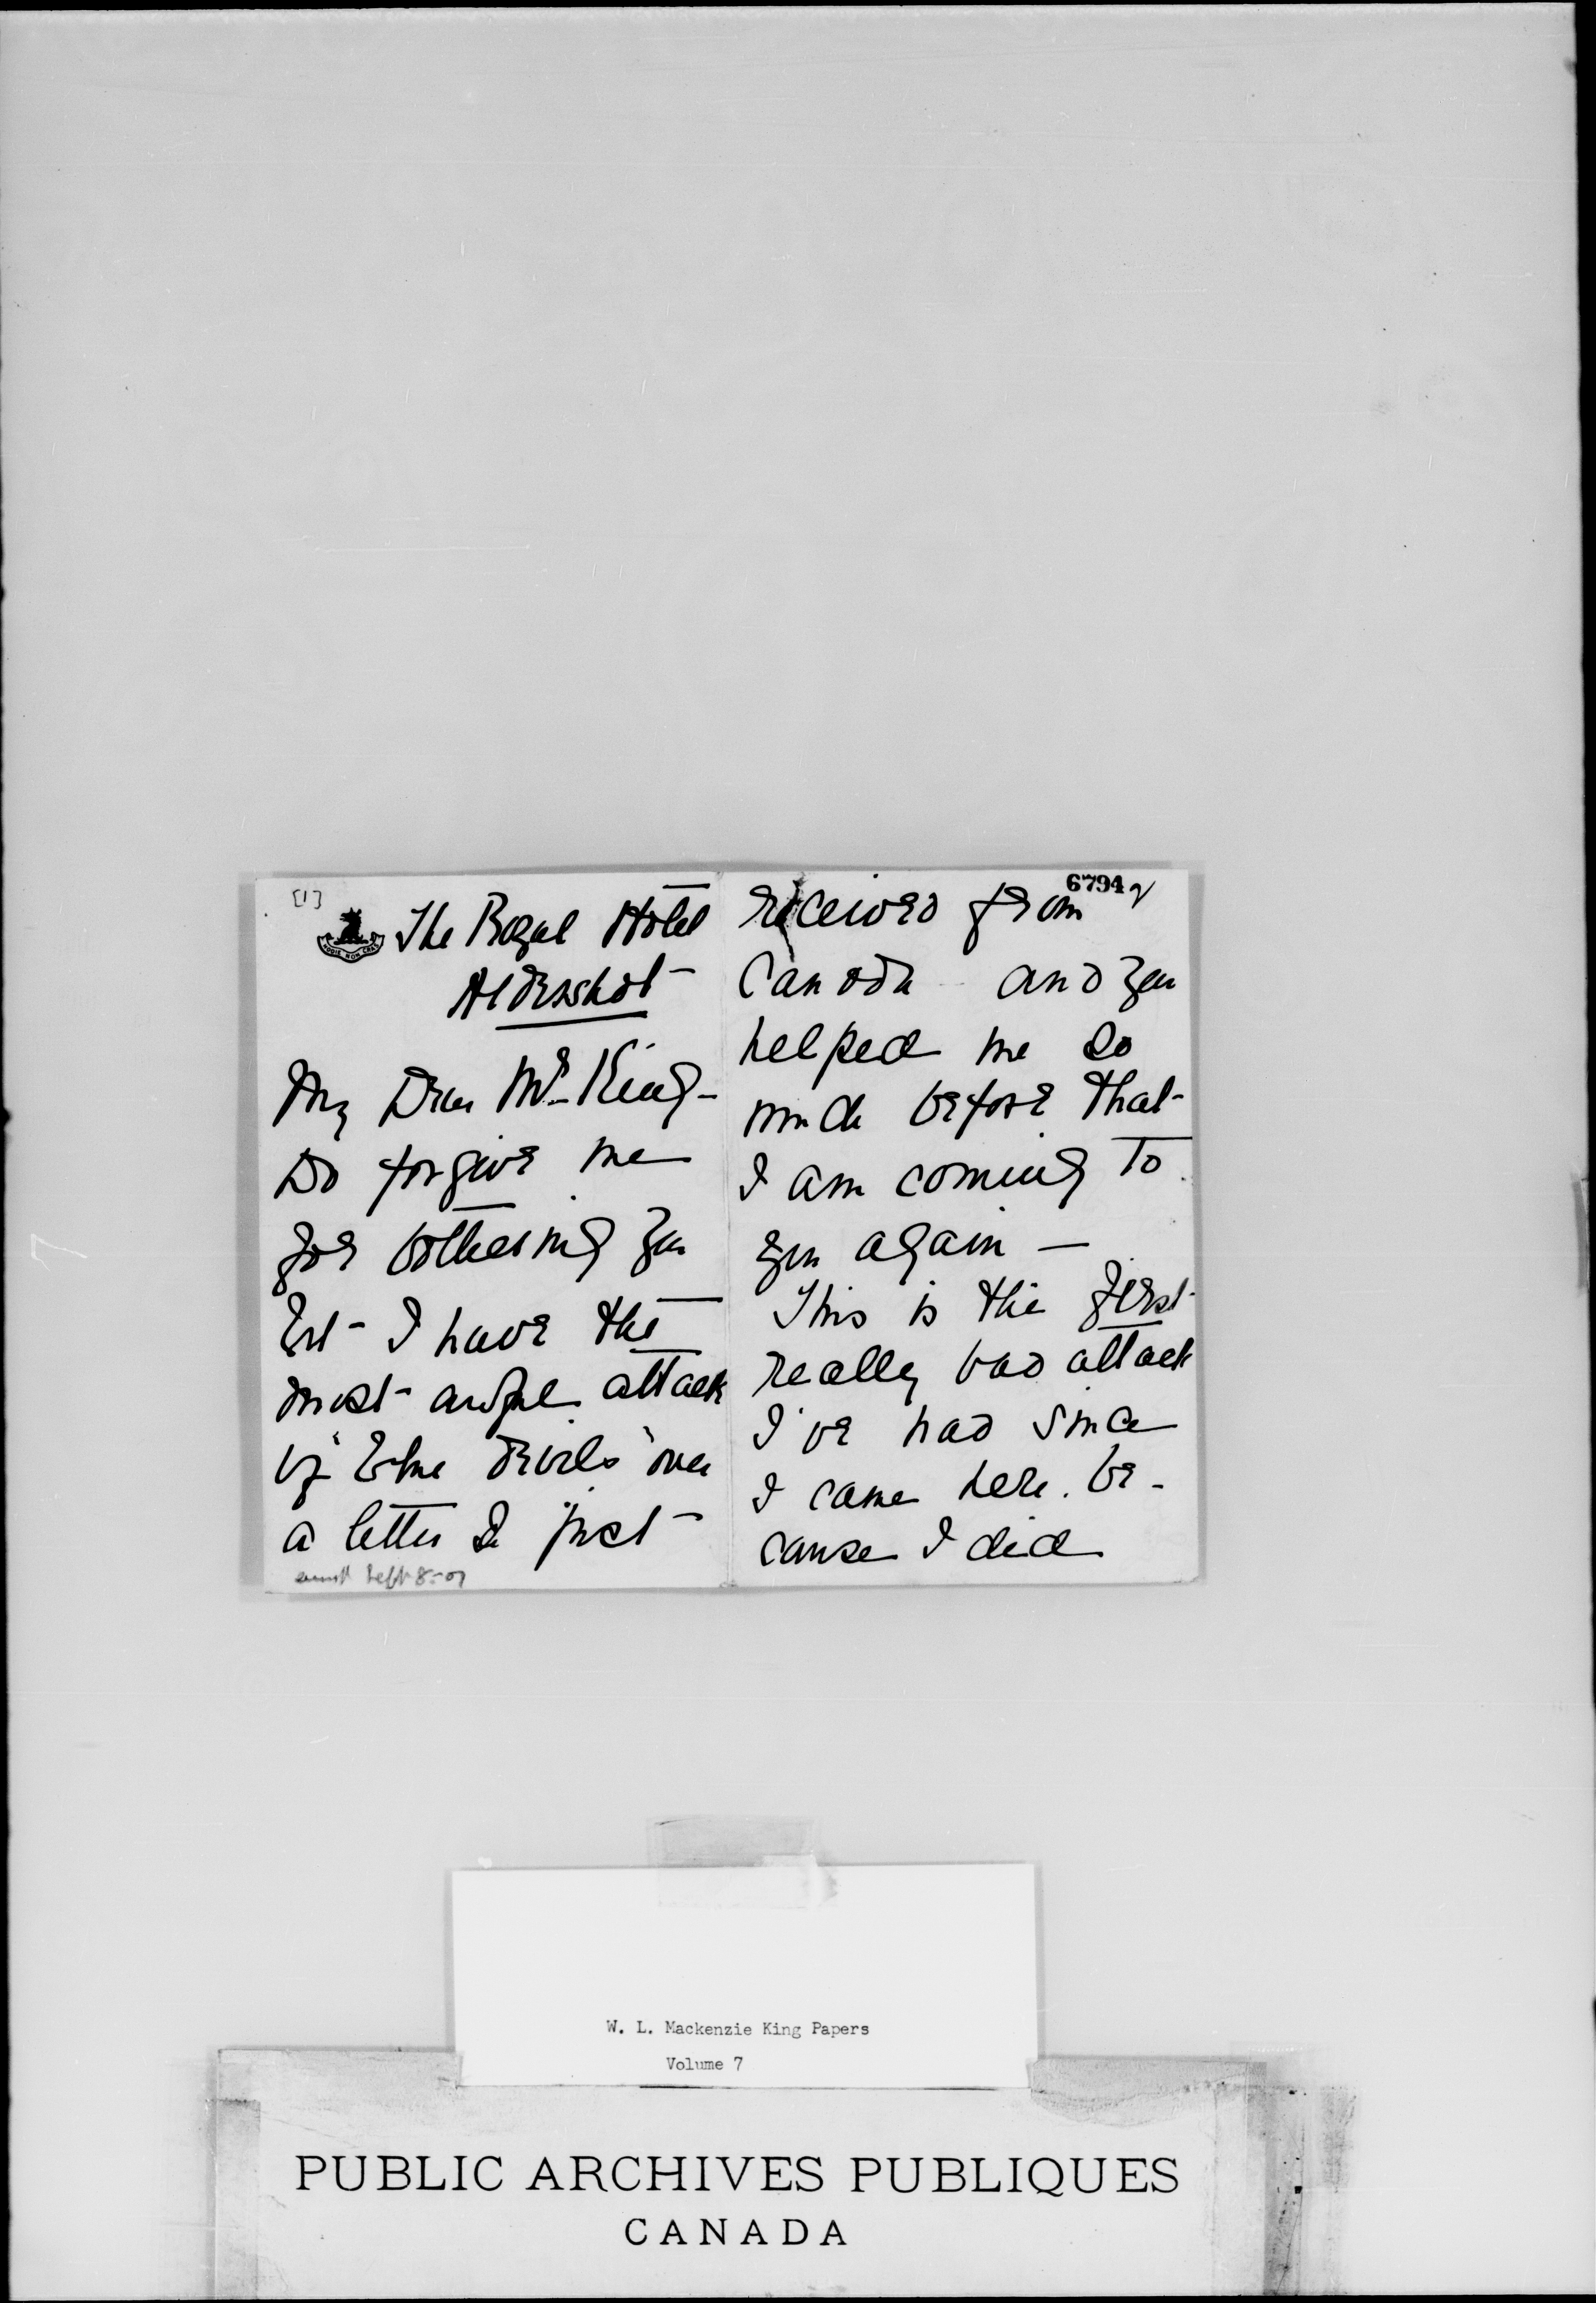 [1]
The Royal Hotel
Aldershot
My Dear Mr King -
Do forgive me
for bothering you
but - I have the
most awful attack
of "blue devils" over
a letter I just
Sept 8-07
67942
received from
Canada and you
helped me so
much before that
I am coming to
you again —
This is the first
really bad attack
I've had since
I came here. be-
cause I did
W. L. Mackenzie King Papers
Volume 7
PUBLIC ARCHIVES PUBLIQUES
CANADA